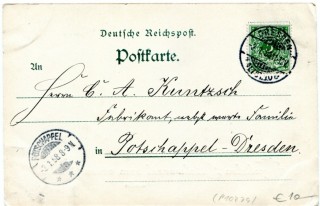 Deutsche Reichspost.
Postkarte.
An
Herrn C. A. Kuntzsch
Fabrikant, nebst werte Familie
in
Potschappel-Dresden.
POTSCHAPPEL
€ 10